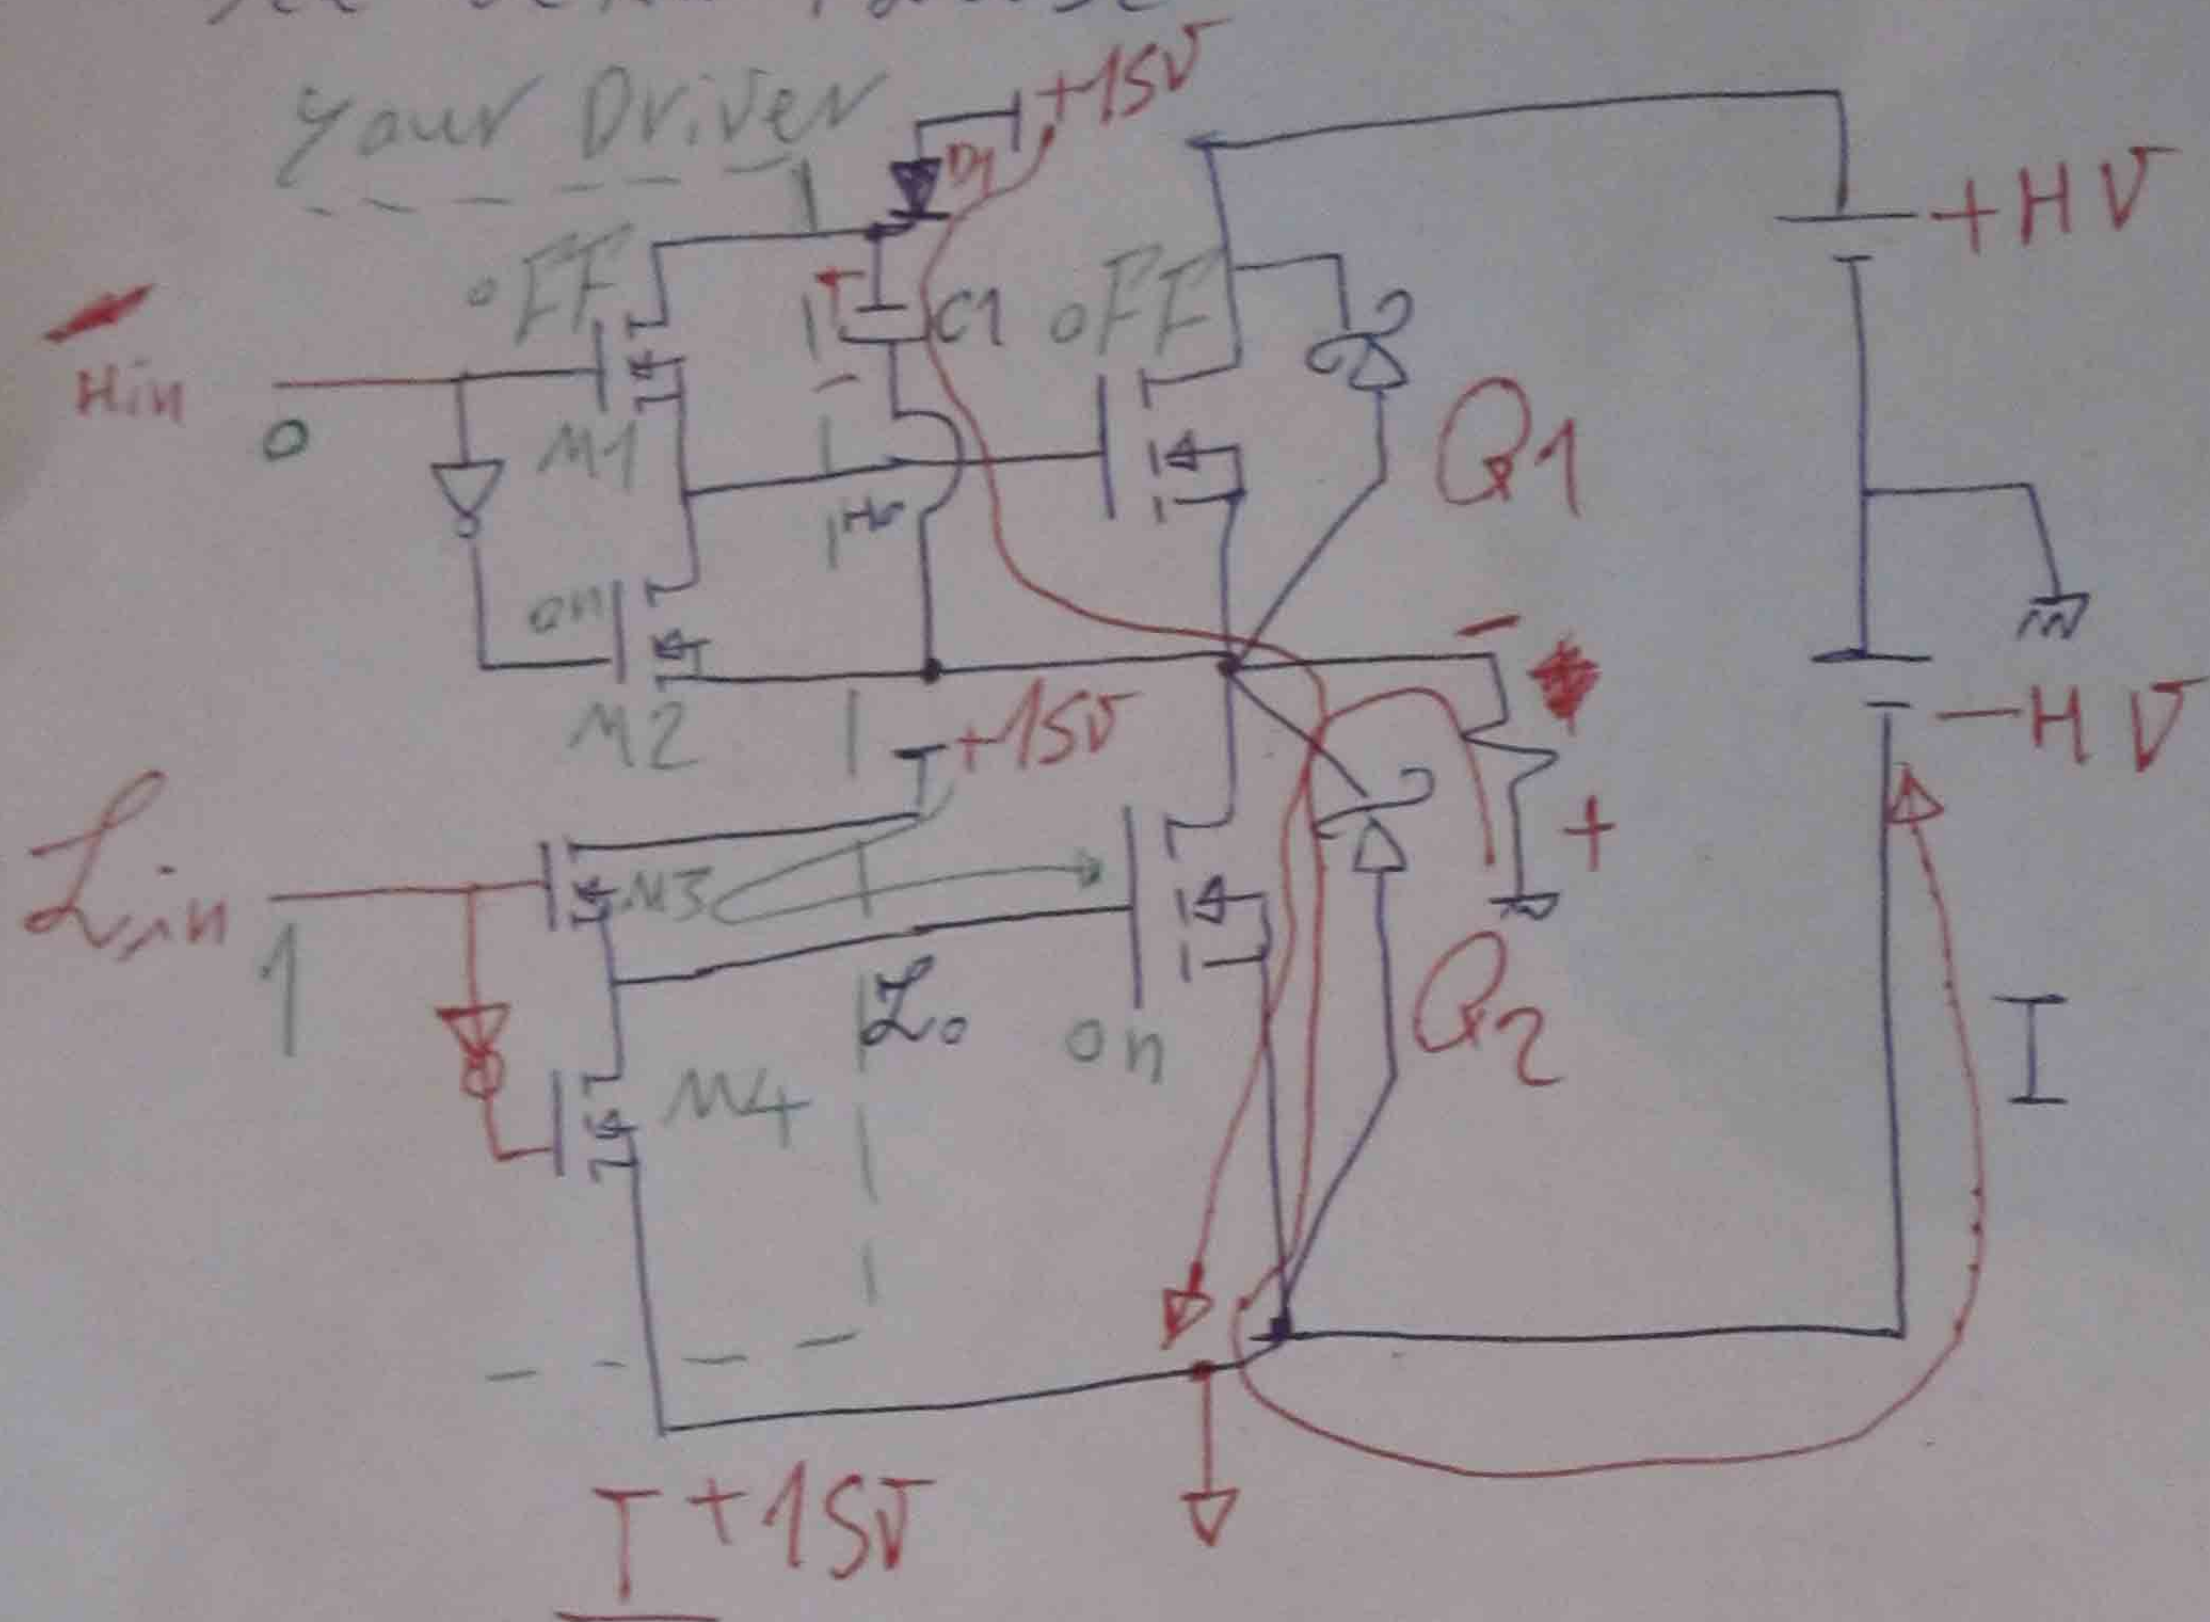 your Driver
+15V
D1
+HV
OFF
C1
OFF
Hin
0
M1
Q1
Ho
on
-
M2
+15V
-HV
Lin
1
M3
+
Lo
on
Q2
I
M4
+15V